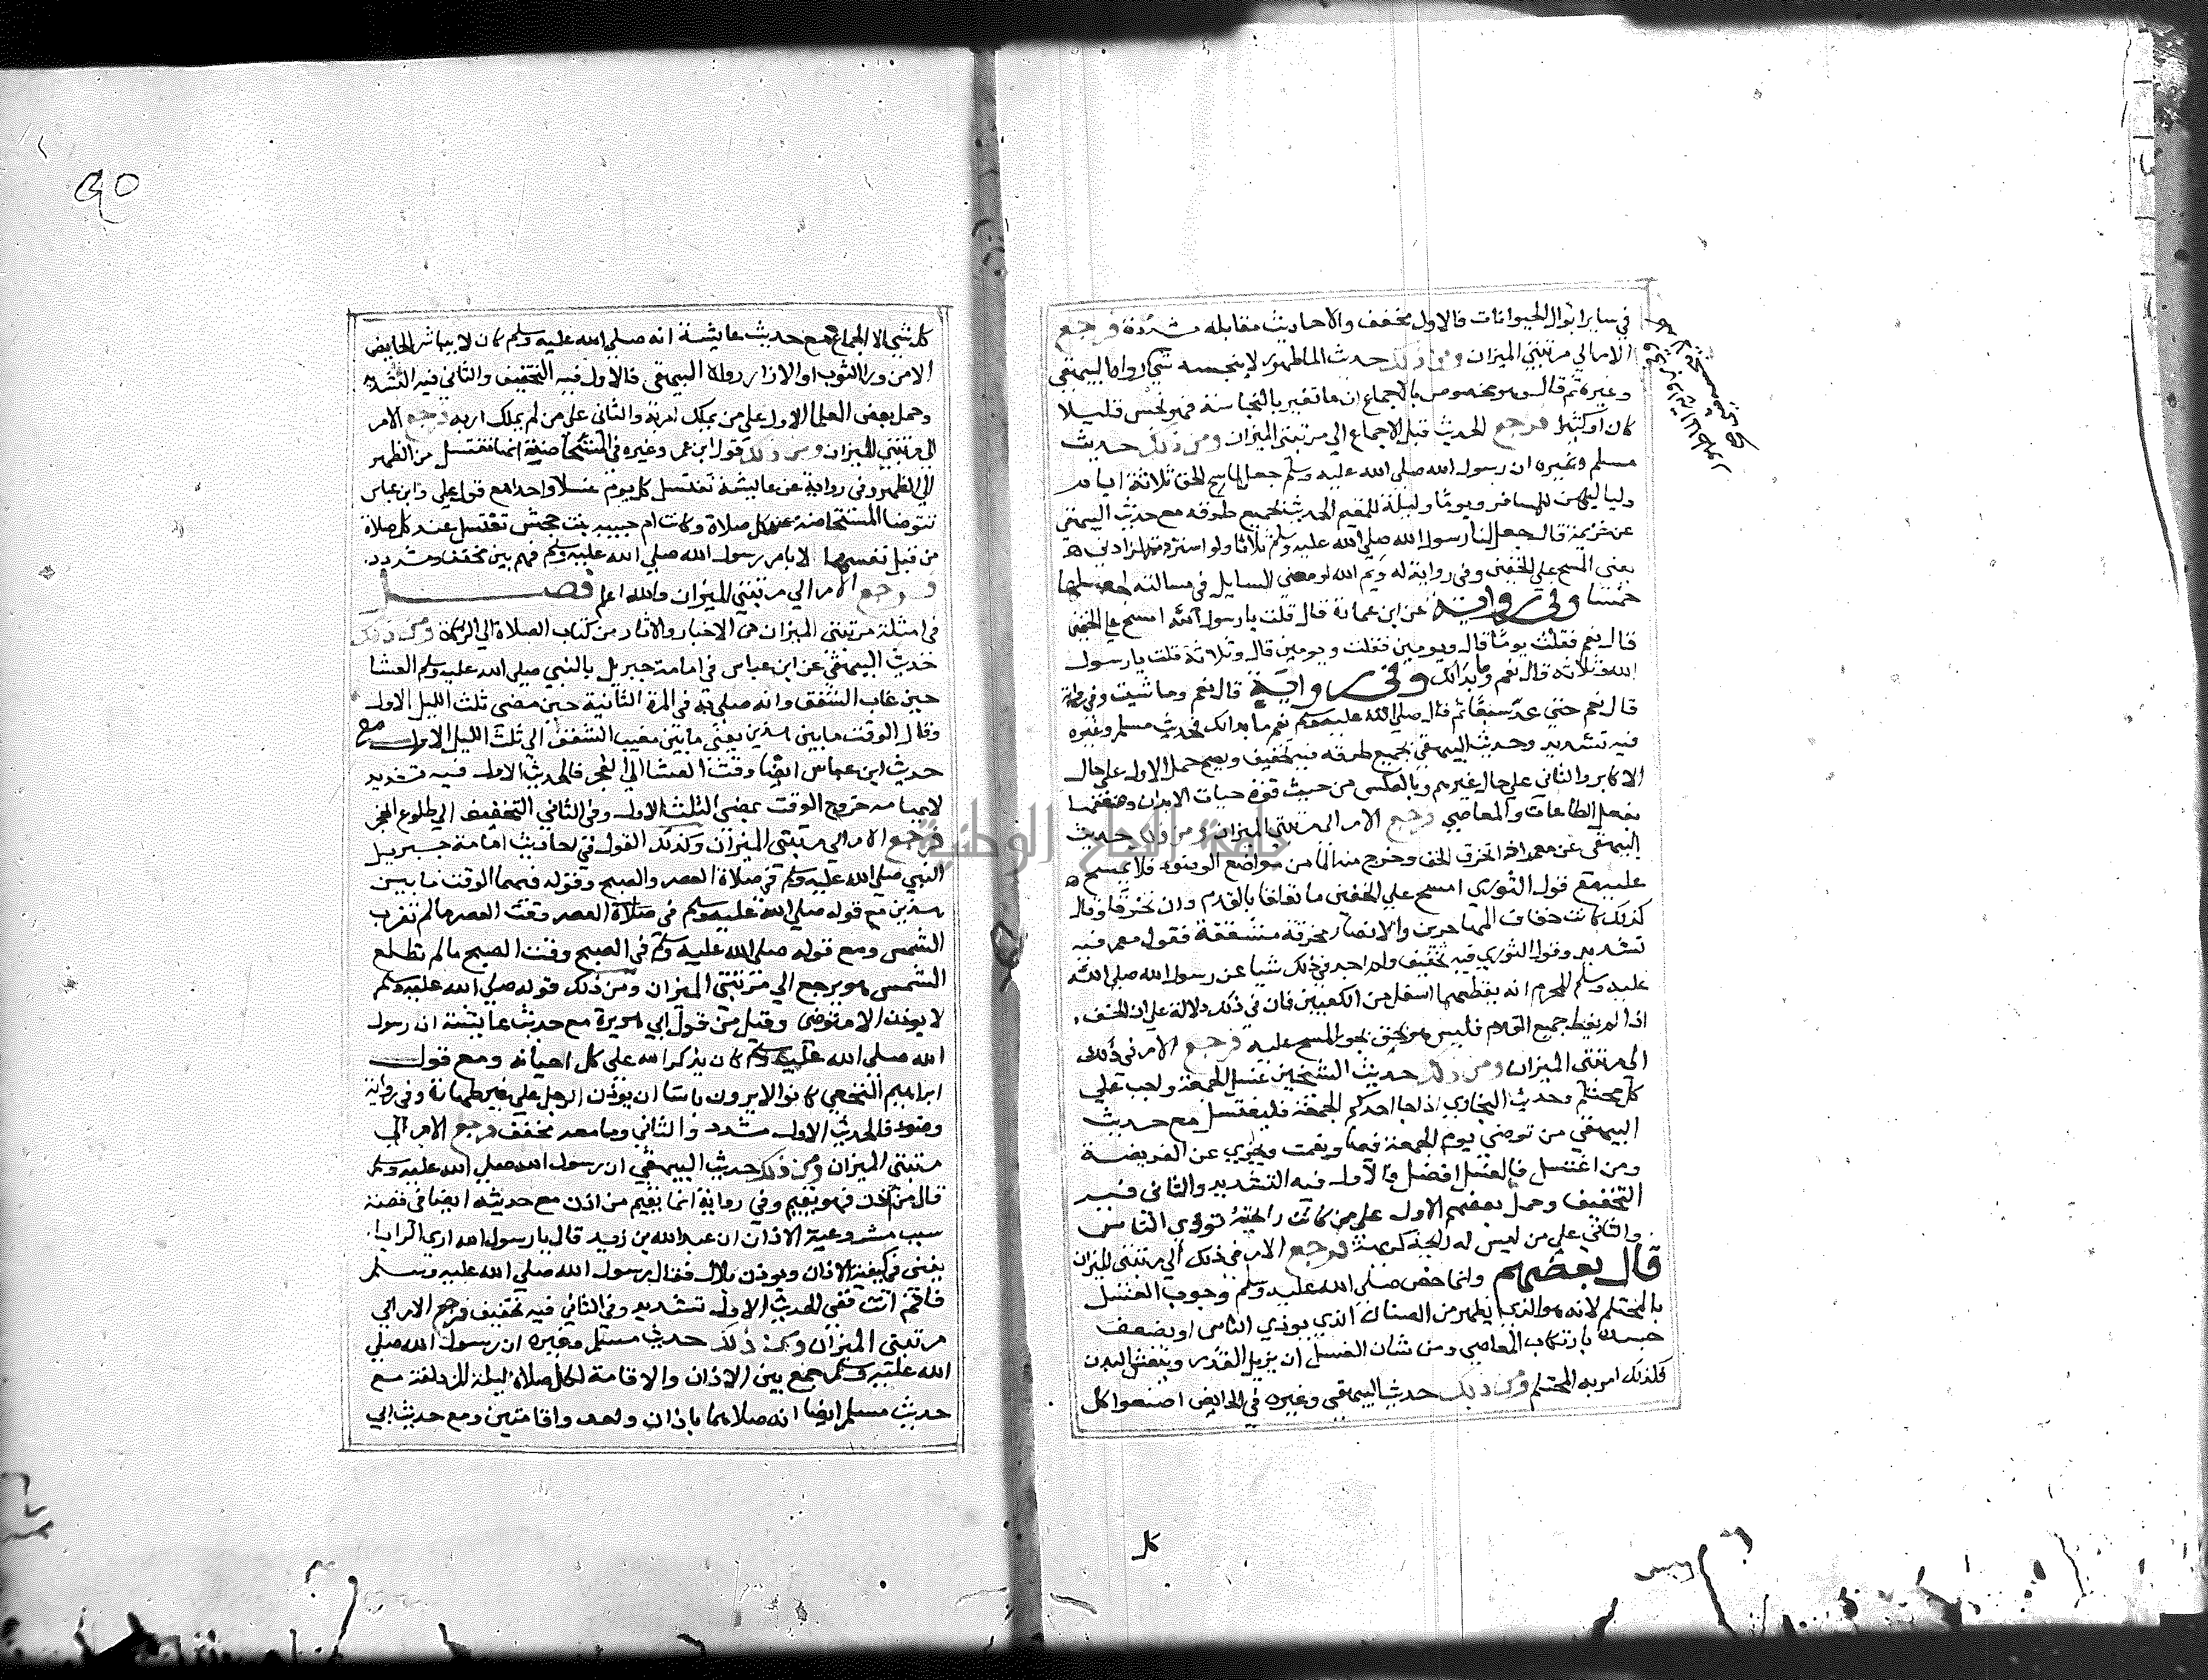 في ساير ابوال الحيوانات فالاول مخفف والاحاديث مقابله مشددة فرجع
الامر الي مرتبتي الميزان ومن ذلك حديث الما طهور لا ينجسه شي رواه البيهقي
وغيره ثم قال وهو مخصوص بالاجماع ان ما تغير بالنجاسة فهو نجس قليلا
كان او كثيرا فرجع الحديث قبل الاجماع الي مرتبتي الميزان ومن ذلك حديث
مسلم وغيره ان رسول الله صلى الله عليه وسلم جعل لماسح الخف ثلاثة ايام
ولياليهن للمسافر ويوما وليلة للمقيم الحديث بجميع طرقه مع حديث البيهقي
عن خزيمة قال جعل لنا رسول الله صلي الله عليه وسلم ثلاثا ولو استزدته لزادني
يعني المسح علي الخفين وفي رواية له وايم الله لو مضي السايل في مسالته لجعلها
خمسا وفي رواية عن ابن عمارة قال قلت يا رسول الله امسح علي الخفين
قال نعم فقلت يوما قال ويومين فقلت ويومين قال وثلاثة قلت يا رسول
الله وثلاثة قال نعم وما بدالك وفي رواية قال نعم وما شيت وفي رواية
قال نعم حتي عد سبعا ثم قال صلي الله عليه وسلم نعم ما بدالك فحديث مسلم وغيره
فيه تشديد وحديث البيهقي بجميع طرقه فيه تخفيف ويصح حمل الاول علي حال
الاكابر والثاني علي حال غيرهم وبالعكس من حيث قوة حيات الابدان وضعفها
بفعل الطاعات والمعاصي فرجع الامر الى مرتبتي الميزان ومن ذلك حديث
البيهقي عن معمر اذا تخرق الخف وخرج منه الما من مواضع الوضوء فلا يمسح
عليه مع قول الثوري امسح علي الخفين ما تعلقا بالقدم وان تخرقا وقال
كذلك كانت خفاف المهاجرين والانصار مخرقة مشققة فقول معمر فيه
تشديد وقول الثوري فيه تخفيف ولم اجد في ذلك شيا عن رسول الله صلي الله
عليه وسلم للمحرم انه يقطعهما اسفل من الكعبين فان في ذلك دلالة علي ان الخف
اذا لم يغط جميع القدم فليس هو بخف يجوز المسح عليه فرجع الامر في ذلك
الي مرتبتي الميزان ومن ذلك حديث الشيخين غسل الجمعة واجب علي
كل محتلم وحديث البخاري اذا جا احدكم الجمعة فليغتسل مع حديث
البيهقي من توضي يوم الجمعة فبها ونعمت ويجزي عن الفريضة
ومن اغتسل فالغسل افضل فالاول فيه التشديد والثاني فيه
التخفيف وحمل بعضهم الاول علي من كانت رايحته توذي الناس
والثاني علي من ليس له رايحة كريهة فرجع الامر في ذلك الي مرتبتي الميزان
قال بعضهم وانما خص صلي الله عليه وسلم وجوب الغسل
بالمحتلم لانه هو الذي يظهر من الصنان الذي يوذي الناس او يضعف
جسده بارتكاب المعاصي ومن شان الغسل ان يزيل القذر وينعش البدن
فلذلك امر به المحتلم ومن ذلك حديث البيهقي وغيره في الحايض اصنعوا كل
كل
٩٥
كل شي الا الجماع مع حديث عايشة انه صلي الله عليه وسلم كان لا يباشر الحايض
الا من ورا الثوب او الازار رواه البيهقي فالاول فيه التخفيف والثاني فيه التشديد
وحمل بعض العلما الاول علي من يملك اربه والثاني علي من لم يملك اربه فرجع الامر
الي مرتبتي الميزان ومن ذلك قول ابن عمر وغيره في المستحاضة انها تغتسل من الظهر
الي الظهر وفي رواية عن عايشة تغتسل كل يوم غسلا واحدا مع قول علي وابن عباس
تتوضا المستحاضة عند كل صلاة وكانت ام حبيبه بنت جحش تغتسل عند كل صلاة
من قبل نفسها الا بامر رسول الله صلي الله عليه وسلم فهم بين مخفف ومشدد
فرجع الامر الي مرتبتي الميزان والله اعلم فصل
في امثلة مرتبتي الميزان من الاخبار والاثار من كتاب الصلاة الي الزكاة ومن ذلك
حديث البيهقي عن ابن عباس في امامة جبريل بالنبي صلي الله عليه وسلم العشا
حين غاب الشفق وانه صلي به في المرة الثانية حين مضى ثلث الليل الاول
وقال الوقت ما بين هذين يعني ما بين مغيب الشفق الي ثلث الليل الاول مع
حديث ابن عباس ايضا وقت العشا الي الفجر فالحديث الاول فيه تشديد
لايهامه خروج الوقت بمضي الثلث الاول وفي الثاني التخفيف الي طلوع الفجر
فرجع الامر الي مرتبتي الميزان وكذلك القول في احاديث امامة جبريل
النبي صلي الله عليه وسلم في صلاة العصر والصبح وقوله فيهما الوقت ما بين
هذين مع قوله صلي الله عليه وسلم في صلاة العصر وقت العصر ما لم تغرب
الشمس ومع قوله صلي الله عليه وسلم في الصبح وقت الصبح ما لم تطلع
الشمس هو يرجع الي مرتبتي الميزان ومن ذلك قوله صلي الله عليه وسلم
لا يوذن الا متوضي وقيل من قول ابي هريرة مع حديث عايشة ان رسول
الله صلى الله عليه وسلم كان يذكر الله على كل احيانه ومع قول
ابراهيم النخعي كانوا لا يرون باسا ان يوذن الرجل علي غير طهارة وفي رواية
وضوء فالحديث الاول مشدد والثاني وما بعده مخفف فرجع الامر الي
مرتبتي الميزان ومن ذلك حديث البيهقي ان رسول الله صلي الله عليه وسلم
قال من اذن فهو يقيم وفي رواية انما يقيم من اذن مع حديثه ايضا في قصة
سبب مشروعية الاذان ان عبد الله بن زيد قال يا رسول الله اري الرايا
يعني في كيفية الاذان ويوذن بلال فقال رسول الله صلي الله عليه وسلم
فاقم انت ففي الحديث الاول تشديد وفي الثاني فيه تخفيف فرجع الامر الي
مرتبتي الميزان ومن ذلك حديث مسلم وغيره ان رسول الله صلي
الله عليه وسلم جمع بين الاذان والاقامة لكل صلاة ليلة المزدلفة مع
حديث مسلم ايضا انه صلاهما باذان واحد واقامتين ومع حديث ابي
جامعة النجاح الوطنية